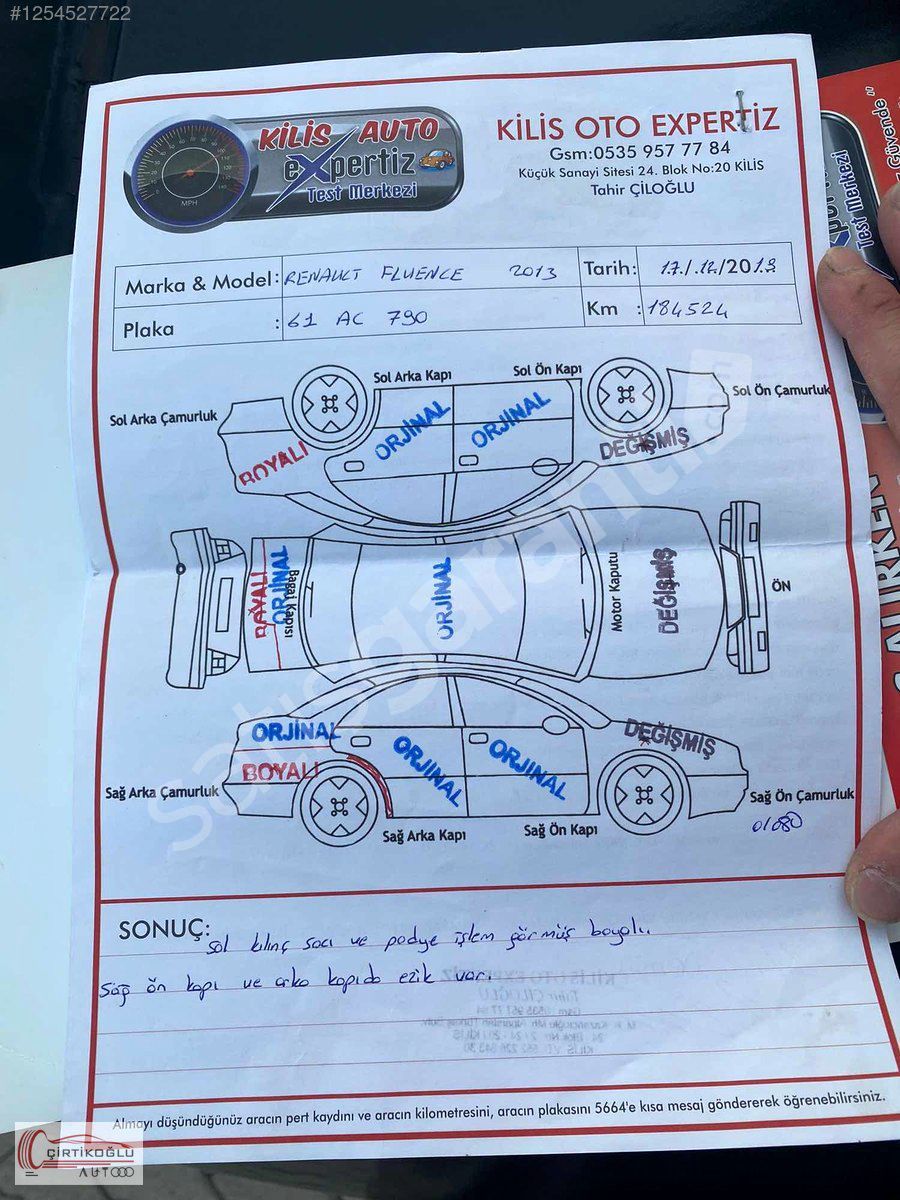 #1254527722
KİLİS AUTO
eXpertiz
Test Merkezi
MPH
KİLİS OTO EXPERTİZ
Gsm:0535 957 77 84
Küçük Sanayi Sitesi 24. Blok No:20 KİLİS
Tahir ÇİLOĞLU
Marka & Model: RENAULT FLUENCE 2013
Tarih: 17/12/2019
Plaka : 61 AC 790
Km : 184524
Sol Arka Kapı
Sol Ön Kapı
Sol Arka Çamurluk
Sol Ön Çamurluk
BOYALI
ORJİNAL
ORJİNAL
DEĞİŞMİŞ
BOYALI
ORJİNAL
Bagaj Kapısı
ORJİNAL
Motor Kaputu
DEĞİŞMİŞ
ÖN
ORJİNAL
BOYALI
ORJİNAL
ORJİNAL
DEĞİŞMİŞ
Sağ Arka Çamurluk
Sağ Arka Kapı
Sağ Ön Kapı
Sağ Ön Çamurluk
01080
SONUÇ:
Sol kılınç sacı ve podye işlem görmüş boyalı.
Sağ ön kapı ve arka kapıda ezik var.
Almayı düşündüğünüz aracın pert kaydını ve aracın kilometresini, aracın plakasını 5664'e kısa mesaj göndererek öğrenebilirsiniz.
ÇİRTİKOĞLU
AUTO
Test Merkezi
Güvende"